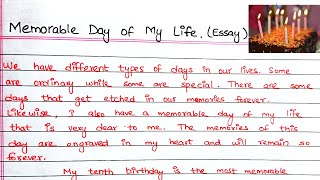 Memorable Day of My Life. (Essay)
We have different types of days in our lives. Some
are ordinary while some are special. There are some
days that get etched in our memories forever.
Likewise, I also have a memorable day of my life
that is very dear to me. The memories of this
day are engraved in my heart and will remain so
forever.
My tenth birthday is the most memorable